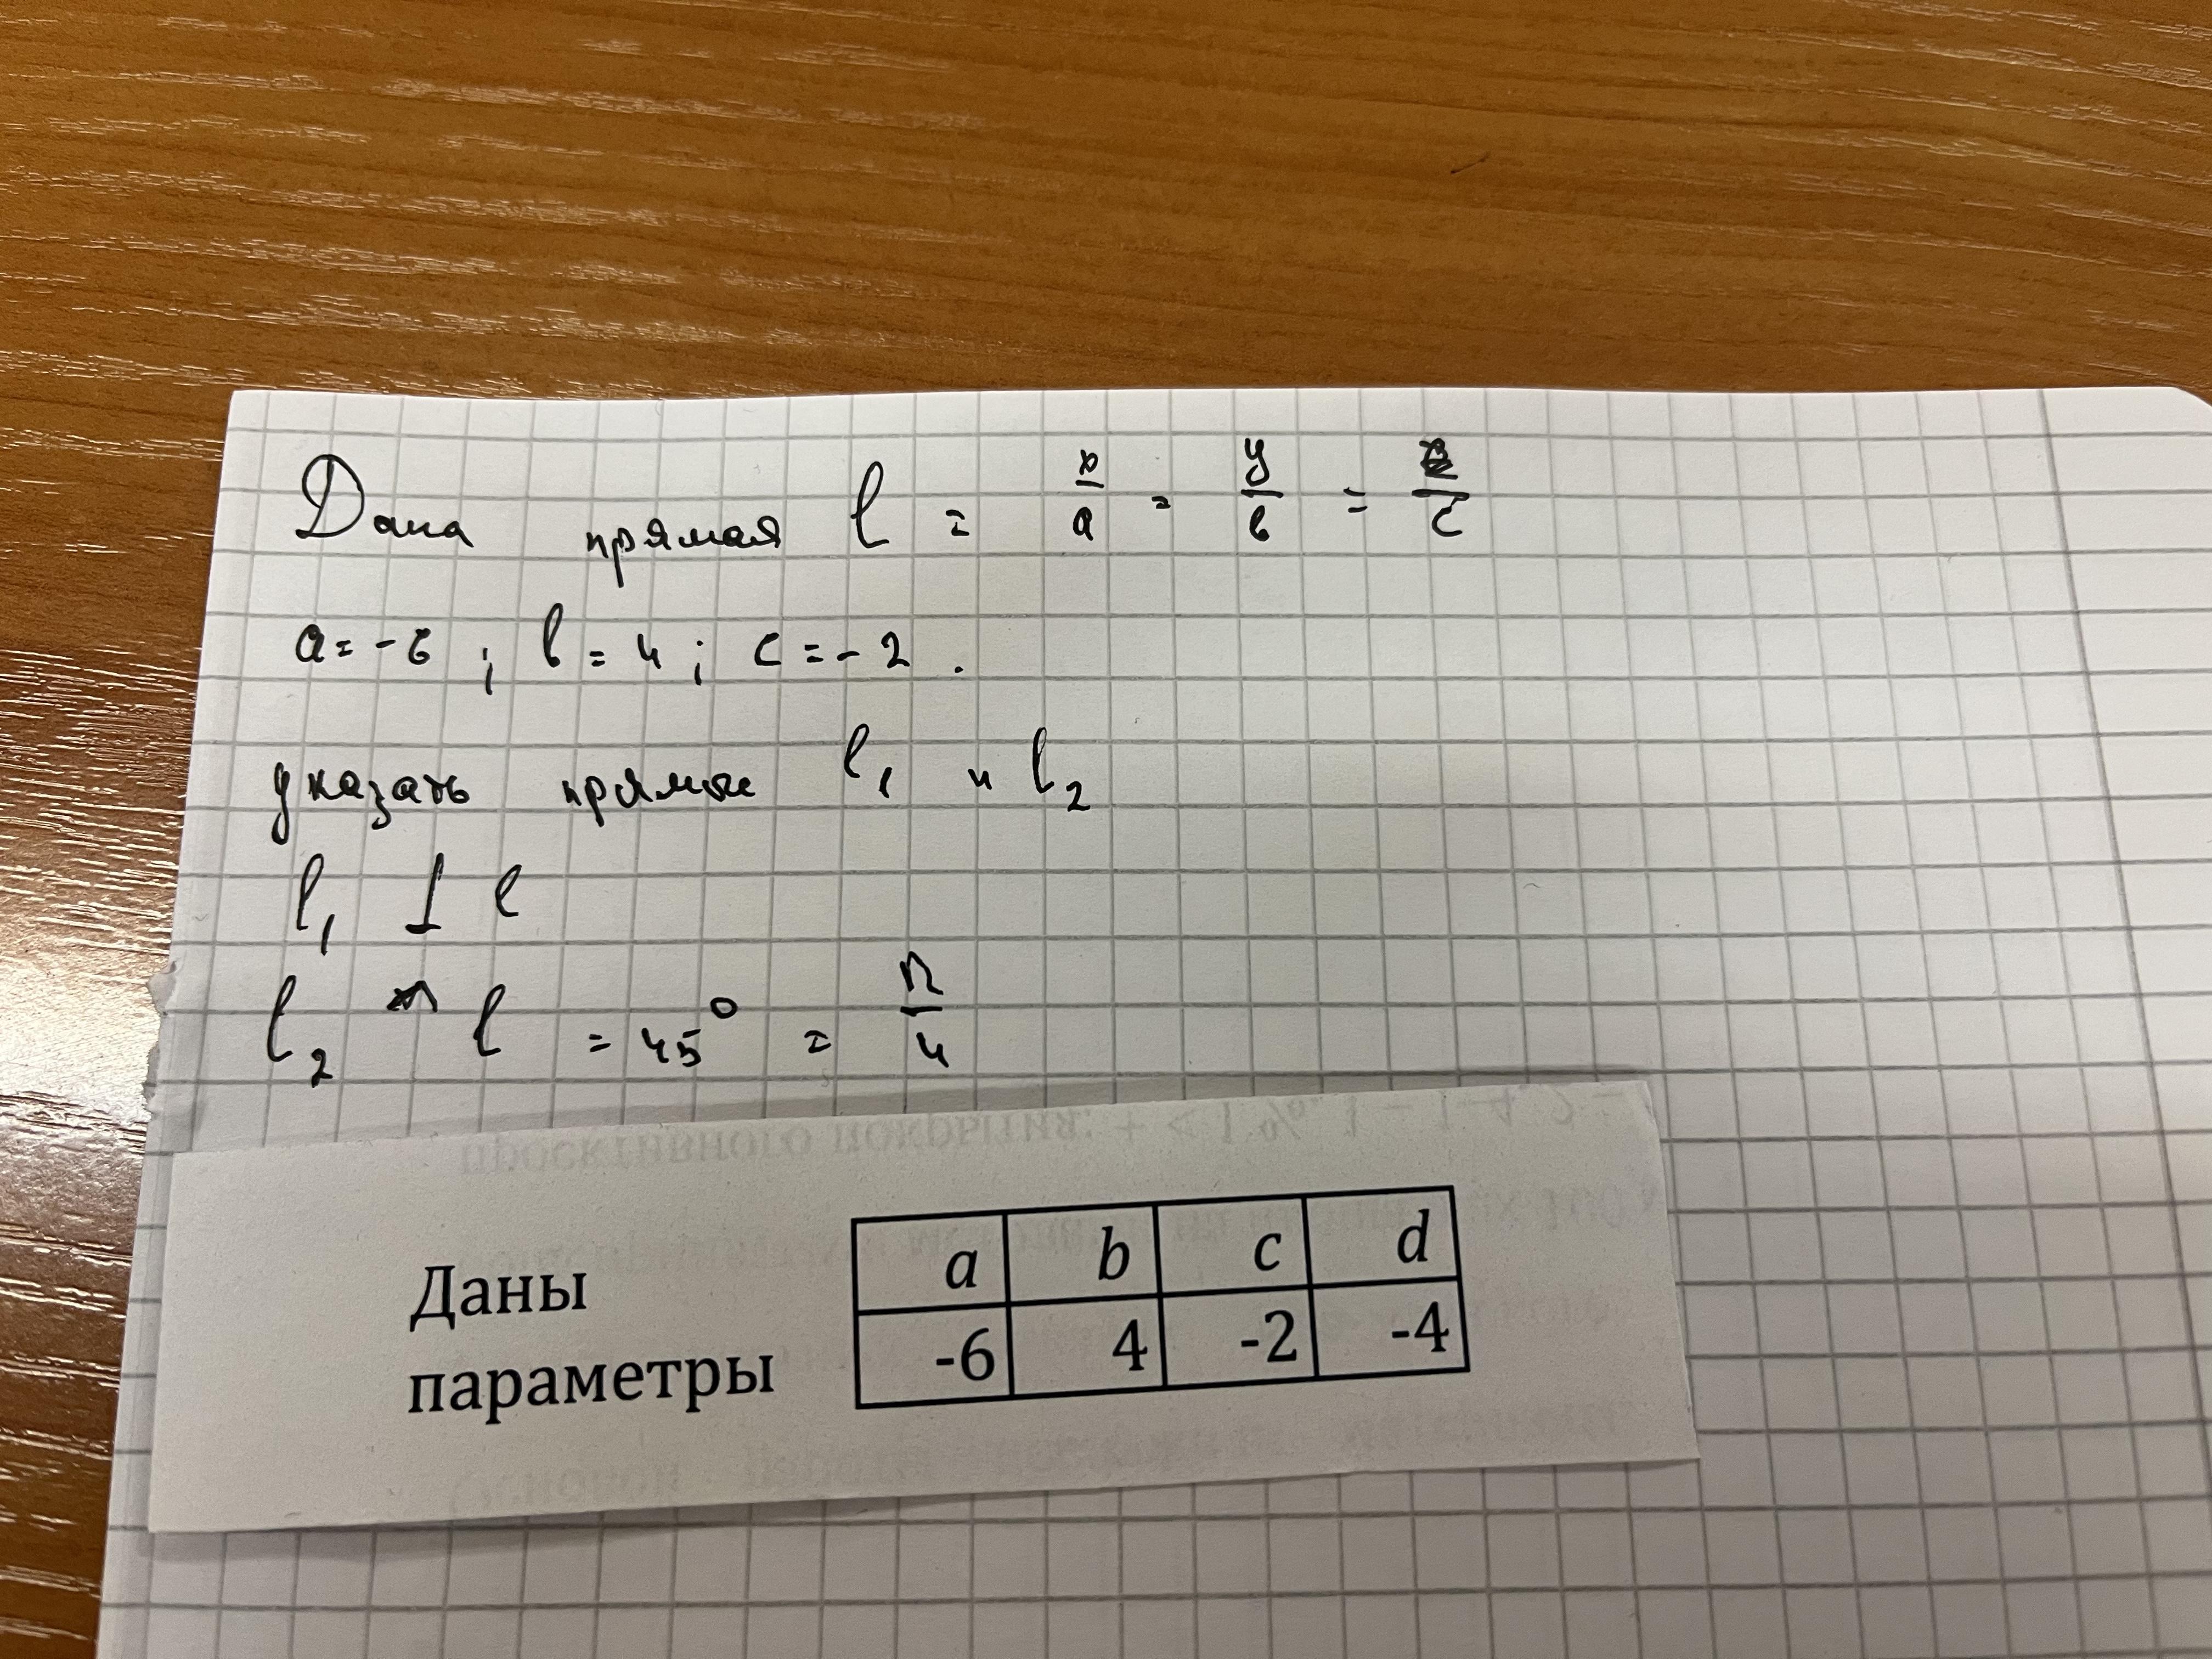 Дана прямая l = x/a = y/b = z/c
a = -6 ; b = 4 ; c = -2 .
указать прямые l₁ и l₂
l₁ ⊥ l
l₂ ^ l = 45° = π/4
Даны параметры
a b c d
-6 4 -2 -4